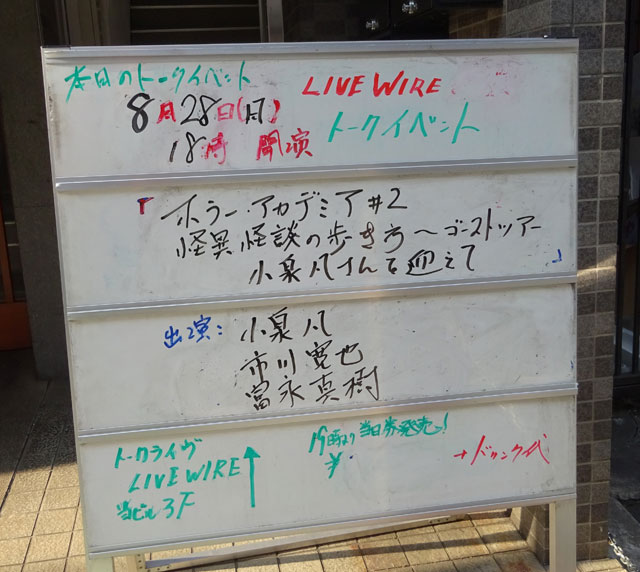 本日のトークイベント
8月28日(日)
18時 開演
LIVE WIRE
トークイベント
「ホラー・アカデミア#2
怪異怪談の歩き方〜ゴーストツアー
小泉凡さんを迎えて」
出演: 小泉凡
市川寛也
富永真樹
トークライヴ
LIVE WIRE
当ビル3F
↑
より当日券発売!
¥
+ドリンク代